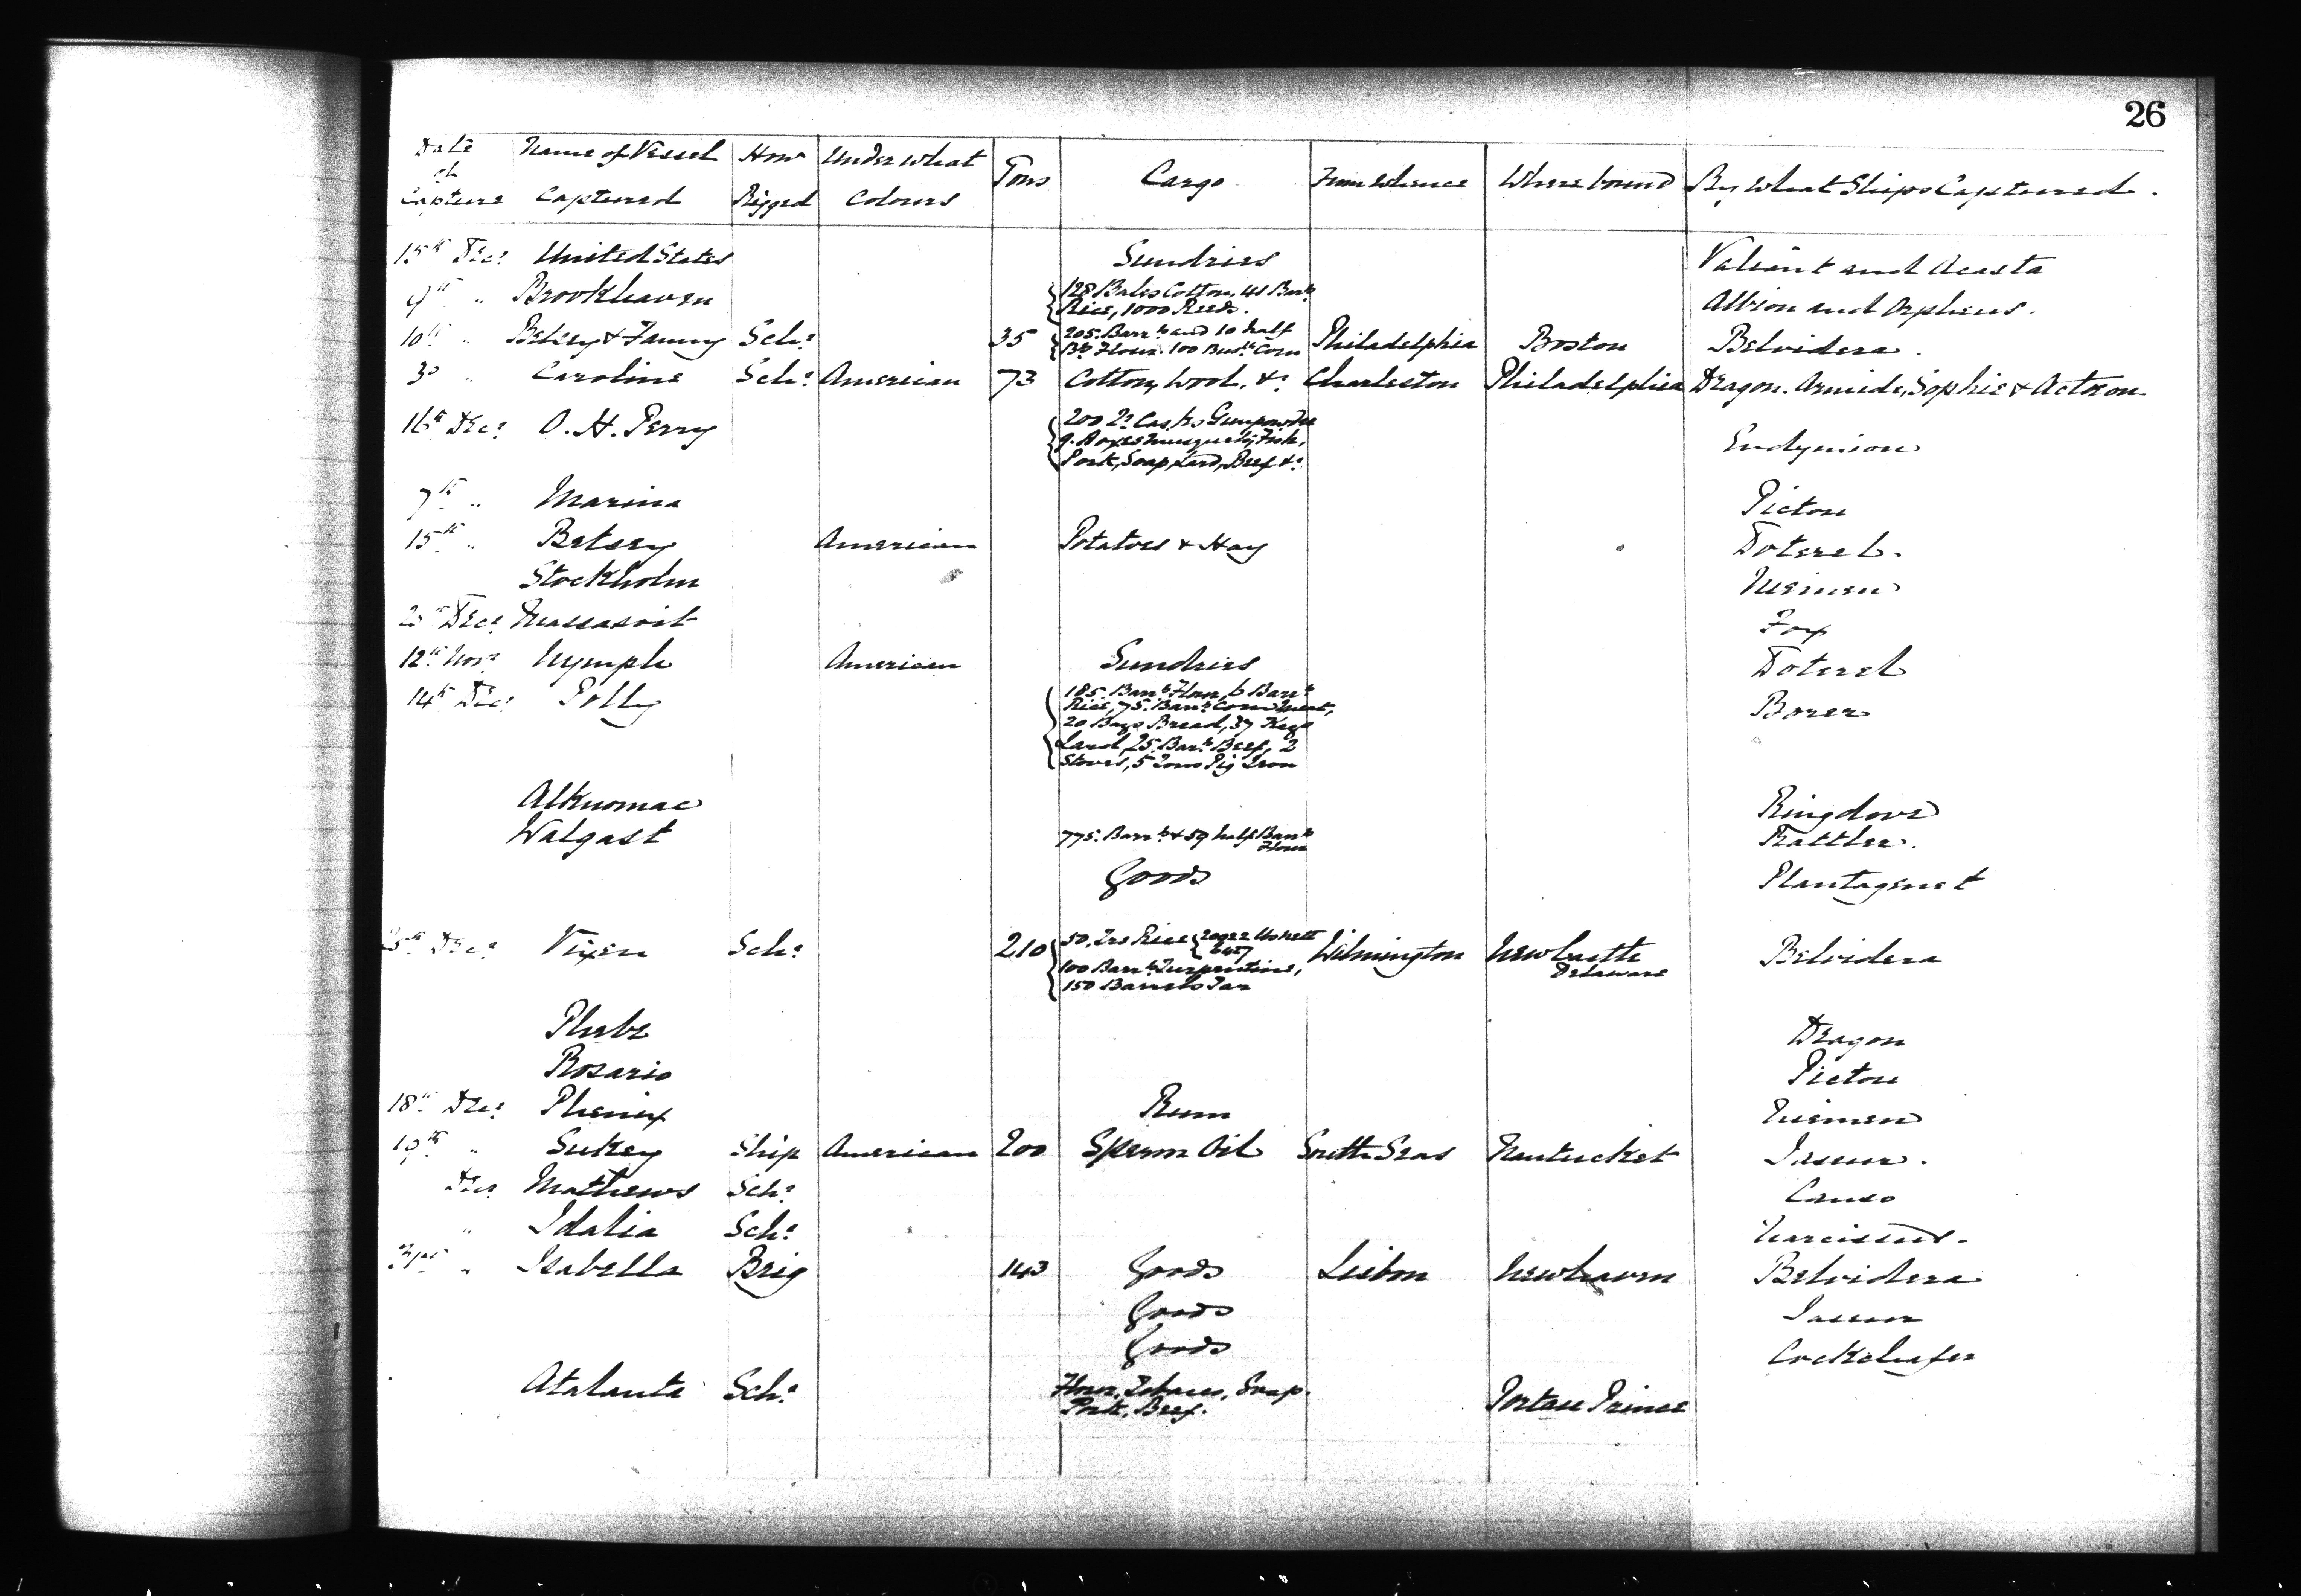 26
Date of Capture Name of Vessel Captured How Rigged Under what Colours Tons Cargo From Whence Where bound By What Ships Captured.
15th Decr United States Sundries Valiant and Acasta
9th " Brookhaven 128 Bales Cotton, 41 Barrs Albion and Orpheus.
Rice, 1000 Reeds.
10th " Betsey & Fanny Schr 35 205. Barrs and 10 half Philadelphia Boston Belvidera.
Bls Flour 100 Bushs Corn
30 " Caroline Schr American 73 Cotton, Wool, &c Charleston Philadelphia Dragon. Armide, Sophie & Acteon
16th Decr O. H. Perry 200 Casks Gunpowder Endymion
9. Boxes Fish,
Pork, Soap, Lard, Beef &c
7th " Marina Pictou
15th " Betsey American Potatoes & Hay Doterel.
Stockholm Niemen
Decr Massasoit Fox
12th Novr Nymph American Sundries Doterel
14th Decr Polly 185. Barrs Flour, 6 Barrs Borer
Rice, 75. Barrs Corn Meat,
20 Bags Bread, 37 Kegs
Lard, 25. Barrs Beef, 2
Stoves, 5 Tons Pig Iron
Alknomac Ringdove
Walgast 775. Barrs & 59 half Barrs Rattler.
Flour
Goods Plantagenet
25th Decr Vixen Schr 210 50. Trs Rice Wilmington Newcastle Belvidera
100 Barrs Turpentine, Delaware
150 Barrels Tar
Phebe Dragon
Rosario Pictou
18th Decr Phenix Rum Niemen
19th " Sukey Ship American 200 Sperm Oil South Seas Nantucket Jaseur.
Decr Mathews Schr Canso
" Idalia Schr Narcissus.
31st " Isabella Brig 143 Goods Lisbon Newhaven Belvidera
Goods Jaseur
Goods Cockchafer
Atalanta Schr Flour, Tobacco, Soap. Port au Prince
Pork, Beef.